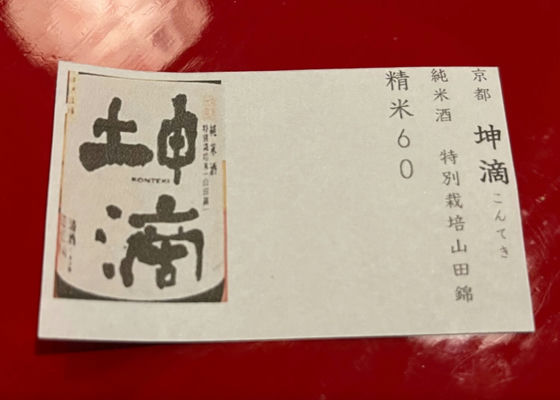 京都 坤滴 こんてき
純米酒 特別栽培山田錦
精米60
坤滴
KONTEKI
純米酒
清酒